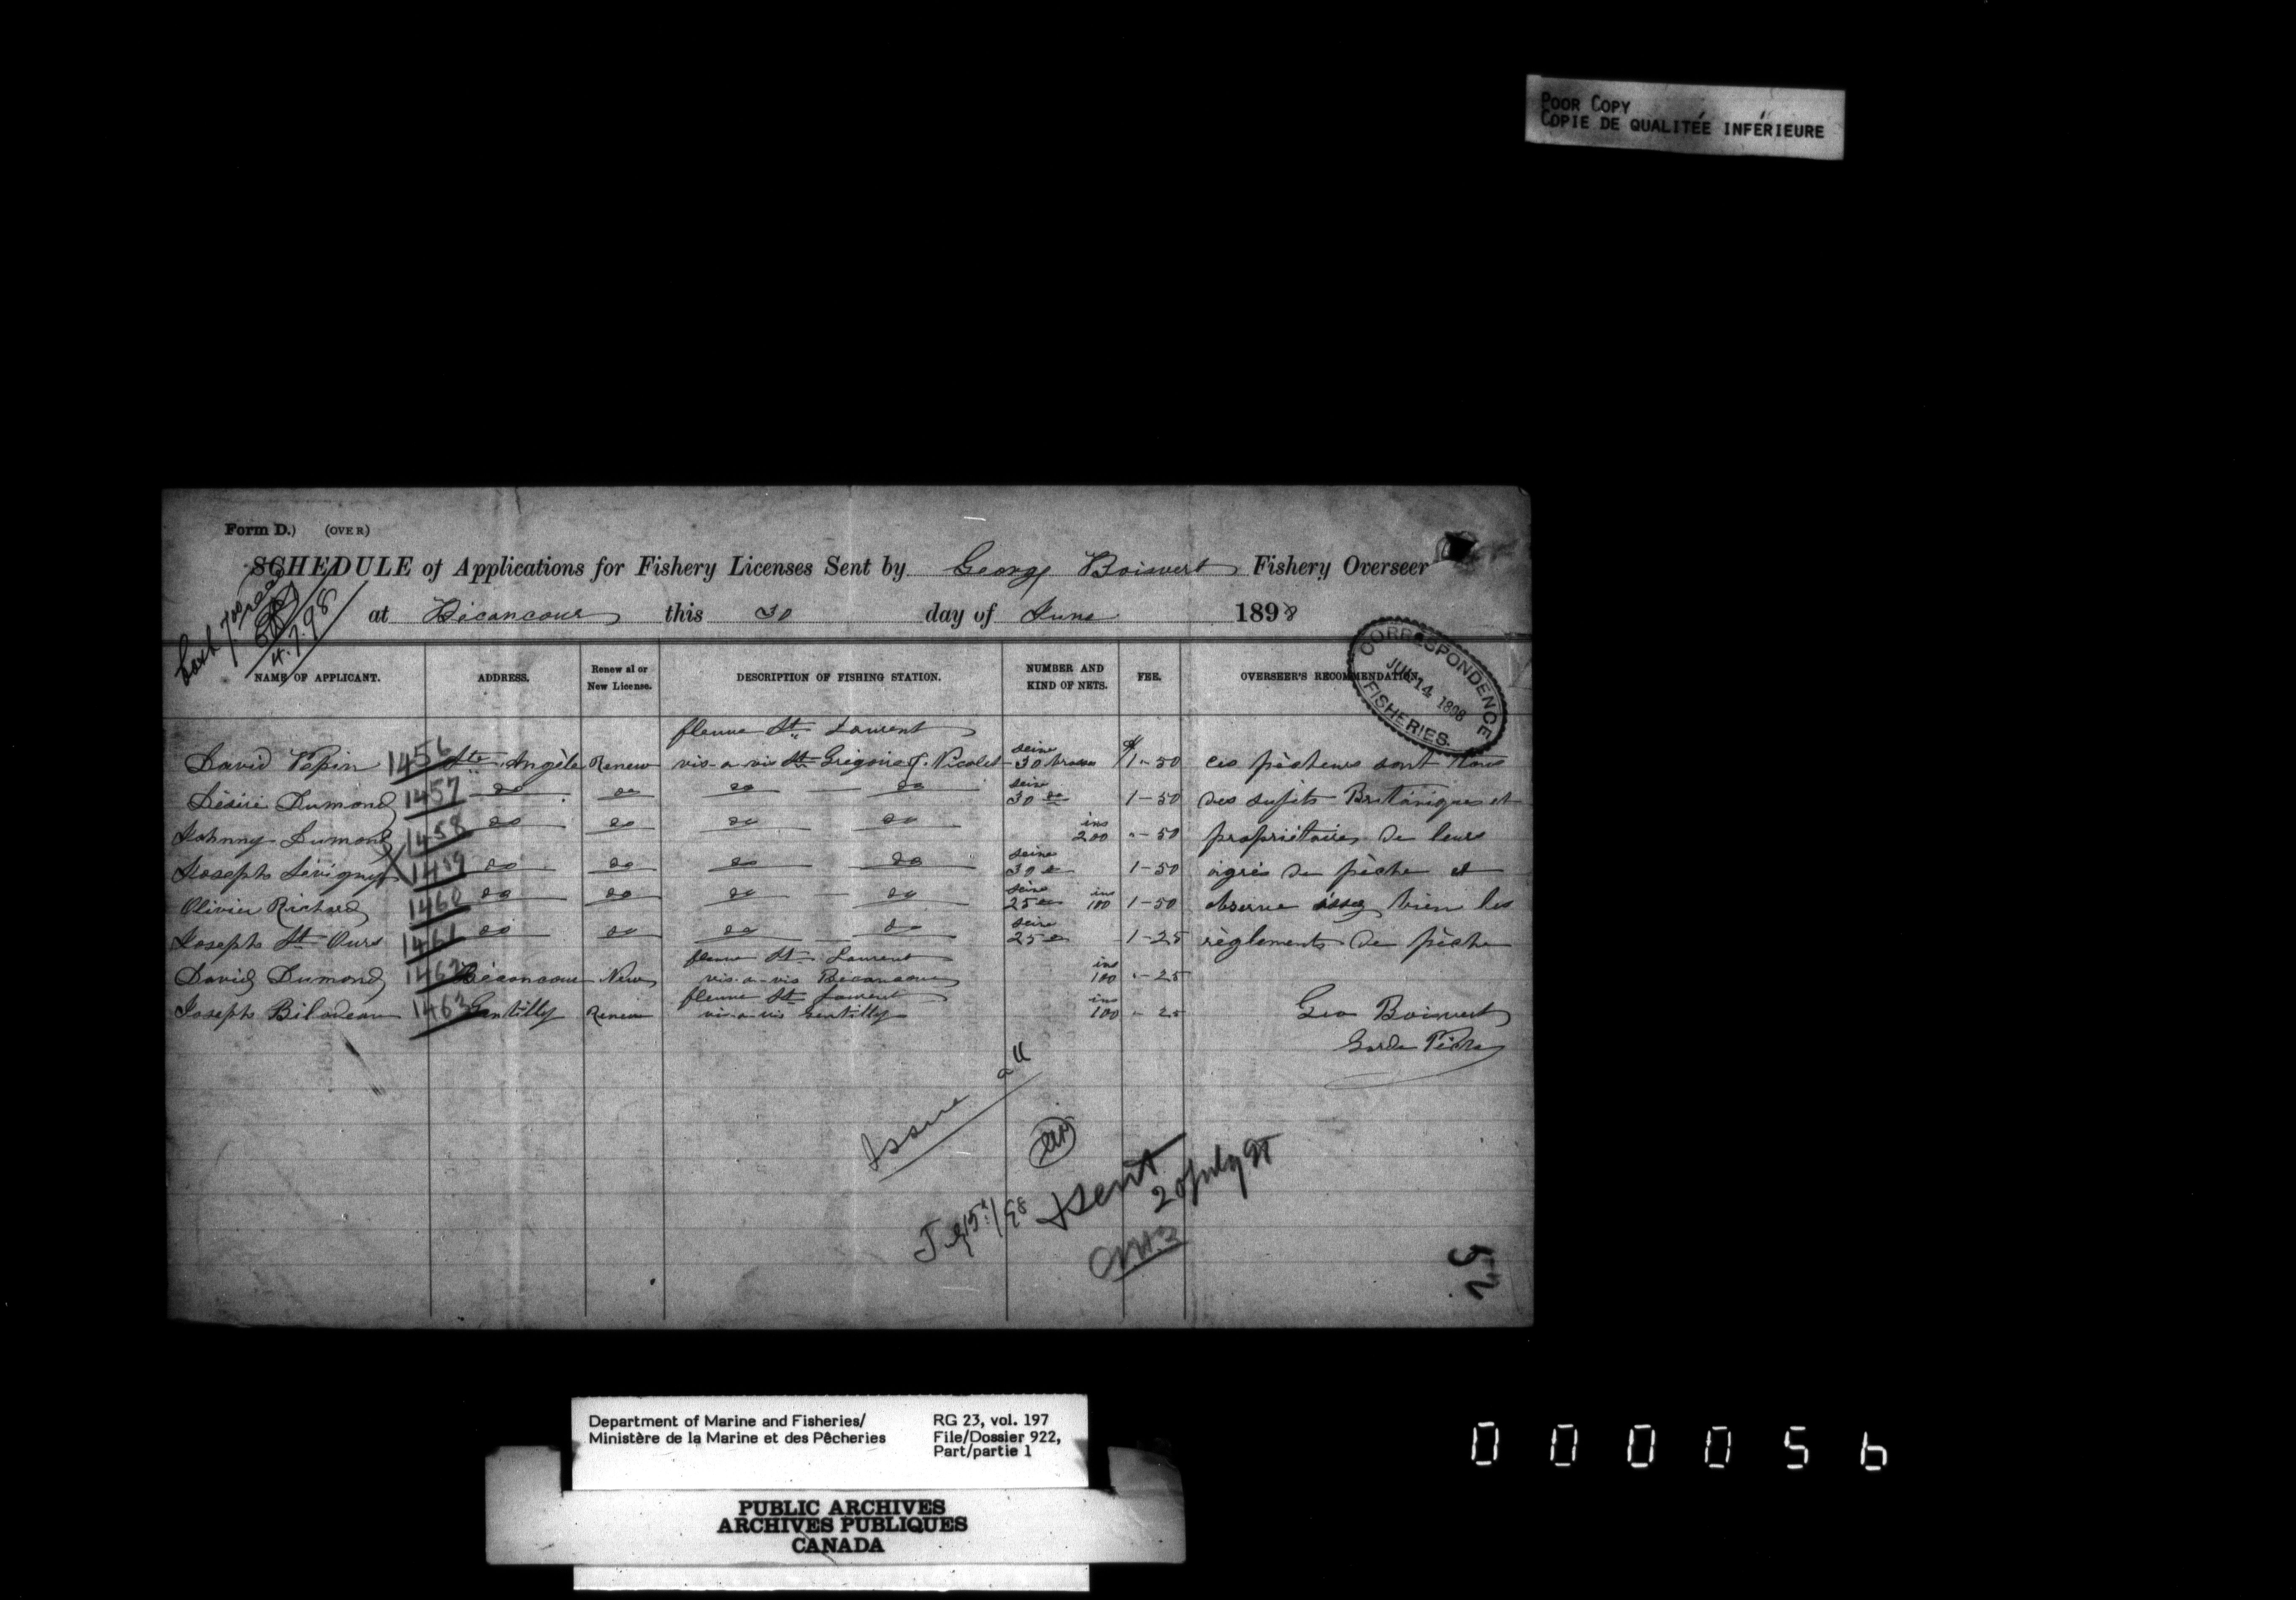 POOR COPY
COPIE DE QUALITÉE INFÉRIEURE
Form D.) (OVER)
SCHEDULE of Applications for Fishery Licenses Sent by George Boisvert Fishery Overseer
at Bécancour this 30 day of June 1898
4.7.98
CORRESPONDENCE
JUL 14 1898
FISHERIES
NAME OF APPLICANT. ADDRESS. Renewal or New License. DESCRIPTION OF FISHING STATION. NUMBER AND KIND OF NETS. FEE. OVERSEER'S RECOMMENDATION.
fleuve St Laurent
David Pepin 1456 Ste Angèle Renew vis-a-vis St Grégoire Nicolet seine 30 brasses $1-50 ces pêcheurs sont tous
Désiré Dumond 1457 do do do do seine 30 do 1-50 des sujets Britaniques et
Johnny Dumond 1458 do do do do ins 200 "-50 propriétaires de leurs
Joseph Sévigny X 1459 do do do do seine 30 do 1-50 agrès de pêche et
Olivier Richard 1460 do do do do seine 25 do ins 100 1-50 observe assez bien les
Joseph St Ours 1461 do do do do seine 25 do 1-25 règlements de pêche
fleuve St Laurent
David Dumond 1462 Bécancour New vis-a-vis Bécancour ins 100 "-25
fleuve St Laurent
Joseph Bilodeau 1463 Gentilly Renew vis-a-vis Gentilly ins 100 "-25 Geo Boisvert
Garde Pêche
Issue all
Sent
20 July 98
52
Department of Marine and Fisheries/ RG 23, vol. 197
Ministère de la Marine et des Pêcheries File/Dossier 922,
Part/partie 1
PUBLIC ARCHIVES
ARCHIVES PUBLIQUES
CANADA
000056